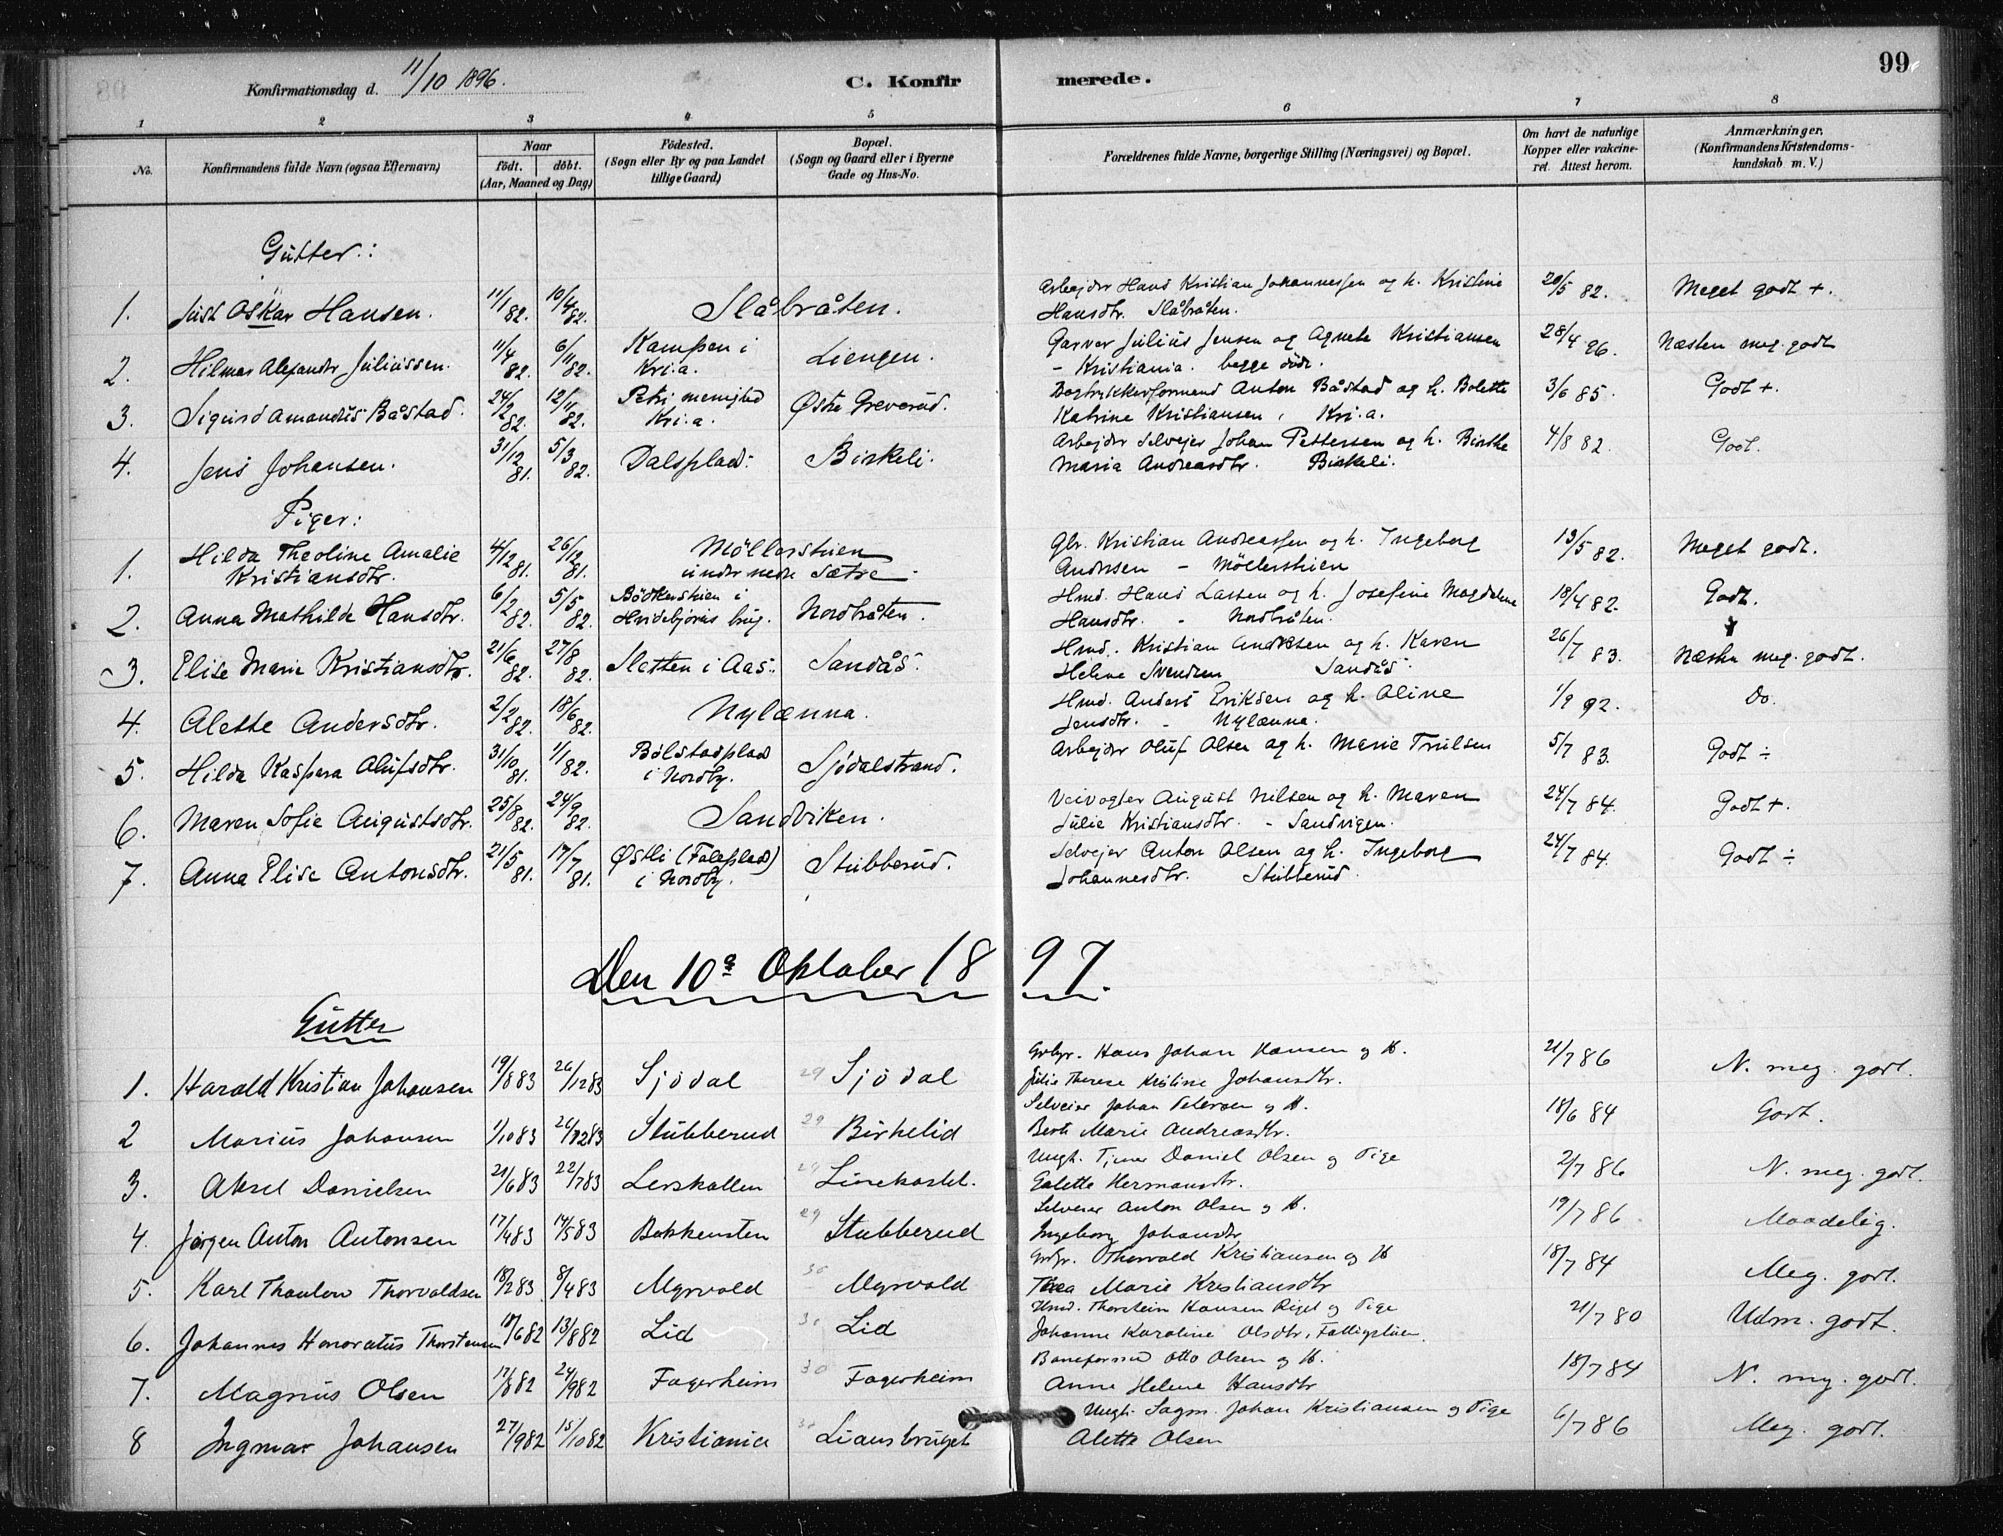 99
Konfirmationsdag d. 11/10 1896.
C. Konfirmerede.
1 2 3 4 5 6 7 8
No. Konfirmandens fulde Navn (ogsaa Efternavn) Naar födt. döbt. (Aar, Maaned og Dag) Födested. (Sogn eller By og paa Landet tillige Gaard) Bopæl. (Sogn og Gaard eller i Byerne Gade og Hus-No. Forældrenes fulde Navne, borgerlige Stilling (Næringsvei) og Bopæl. Om havt de naturlige Kopper eller vakcineret. Attest herom. Anmærkninger. (Konfirmandens Kristendomskundskab m. V.)
Gutter:
1. Just Oskar Hansen. 11/1 82. 10/4 82. Slåbråten. Arbejder Hans Kristian Johannessen og h. Kristine Hansdtr. Slåbråten. 20/5 82. Meget godt +.
2. Hilmar Alexandr Juliussen. 11/4 82. 6/11 82. Kampen i Kri.a. Liengen. Garver Julius Jensen og Agnete Kristiansen - Kristiania. begge døde. 28/4 96. Næsten meg. godt
3. Sigurd Amandus Båstad. 24/2 82. 12/11 82. Petri menighed Kri.a. Østre Greverud. Bogtrykkerformand Anton Båstad og h. Bolette Katrine Kristiansen, Kri.a. 3/6 85. Godt +
4. Jens Johansen. 31/12 81. 5/3 82. Dalsplad: Birkeli. Arbejder Selvejer Johan Pettersen og h. Birthe Maria Andreasdtr. Birkeli. 4/8 82. Godt.
Piger:
1. Hilda Theoline Amalie Kristiansdtr. 4/12 81. 26/12 81. Møllerstuen under nedre Sætre. Gbr. Kristian Andreassen og h. Ingeborg Andersen - Møllerstuen 13/5 82. Meget godt.
2. Anna Mathilde Hansdtr. 6/2 82. 5/5 82. Bödkerstuen i Hvidebjørns brug. Nordbråten. Hmd. Hans Larsen og h. Josefine Magdalene Hansdtr. - Nordbråten. 18/4 82. Godt.
3. Elise Marie Kristiansdtr. 21/6 82. 27/8 82. Sletten i Aas. Sandås. Hmd. Kristian Andersen og h. Karen Helene Svendsen Sandås. 26/7 83. Næsten meg. godt.
4. Alette Andersdtr. 2/2 82. 18/6 82. Nylænna. Hmd. Anders Eriksen og h. Oline Jensdtr. - Nylænna. 1/9 92. Do.
5. Hilda Kaspara Olufsdtr. 31/10 81. 1/1 82. Bölstadplads i Nordby. Sjödalstrand. Arbejder Oluf Olsen og h. Marie Trulsen 5/7 83. Godt ÷
6. Maren Sofie Augustsdtr. 25/8 82. 24/9 82. Sandviken. Veivogter August Nilsen og h. Maren Julie Kristiansdtr. - Sandvigen. 24/7 84. Godt +.
7. Anna Elise Antonsdtr. 21/5 81. 17/7 81. Østli (Faleplads) i Nordby. Stubberud. Selvejer Anton Olsen og h. Ingeborg Johannesdtr. Stubberud. 24/7 84. Godt ÷
Den 10de Oktober 1897.
Gutter
1. Harald Kristian Johansen 19/8 83 26/12 83 Sjödal 29 Sjödal Grbgr. Hans Johan Hansen og H. Julie Therese Kristine Johansdtr. 21/7 86 N. meg. godt.
2 Marius Johansen 1/10 83 26/12 83 Stubberud 29 Birkelid Selveier Johan Petersen og H. Berte Marie Andreasdtr. 18/6 84 Godt.
3. Aksel Danielsen 21/6 83 22/7 83 Lerskallen 29 Linekastet. Ungk. Tjener Daniel Olsen og Pige Galette Hermansdtr. 2/7 86 N. meg. godt.
4. Jørgen Anton Antonsen 17/4 83 14/5 83 Bakkensten 29 Stubberud Selveier Anton Olsen og H. Ingeborg Johansdtr. 19/7 86 Maadelig.
5. Karl Thaulow Thorvaldsen 18/2 83 8/4 83 Myrvold 30 Myrvold Grbgr. Thorvald Kristiansen og H Thea Marie Kristiansdtr 18/7 84 Meg. godt.
6. Johannes Honoratus Thorstensen 18/6 82 13/8 82 Lid 30 Lid Hmd. Thorstein Hansen Riget og Pige Johanne Karoline Olsdtr, Fattigstuen 21/7 80 Udm. godt.
7. Magnus Olsen 17/8 82 24/9 82 Fagerheim 30 Fagerheim Baneformd Otto Olsen og H. Anne Helene Hansdtr 18/7 84 N. meg. godt.
8 Ingmar Johansen 27/9 82 15/10 82 Kristiania 30 Liansbruget Ungk. Sagm. Johan Kristiansen og Pige Alette Olsen 6/7 86 Meg. godt.